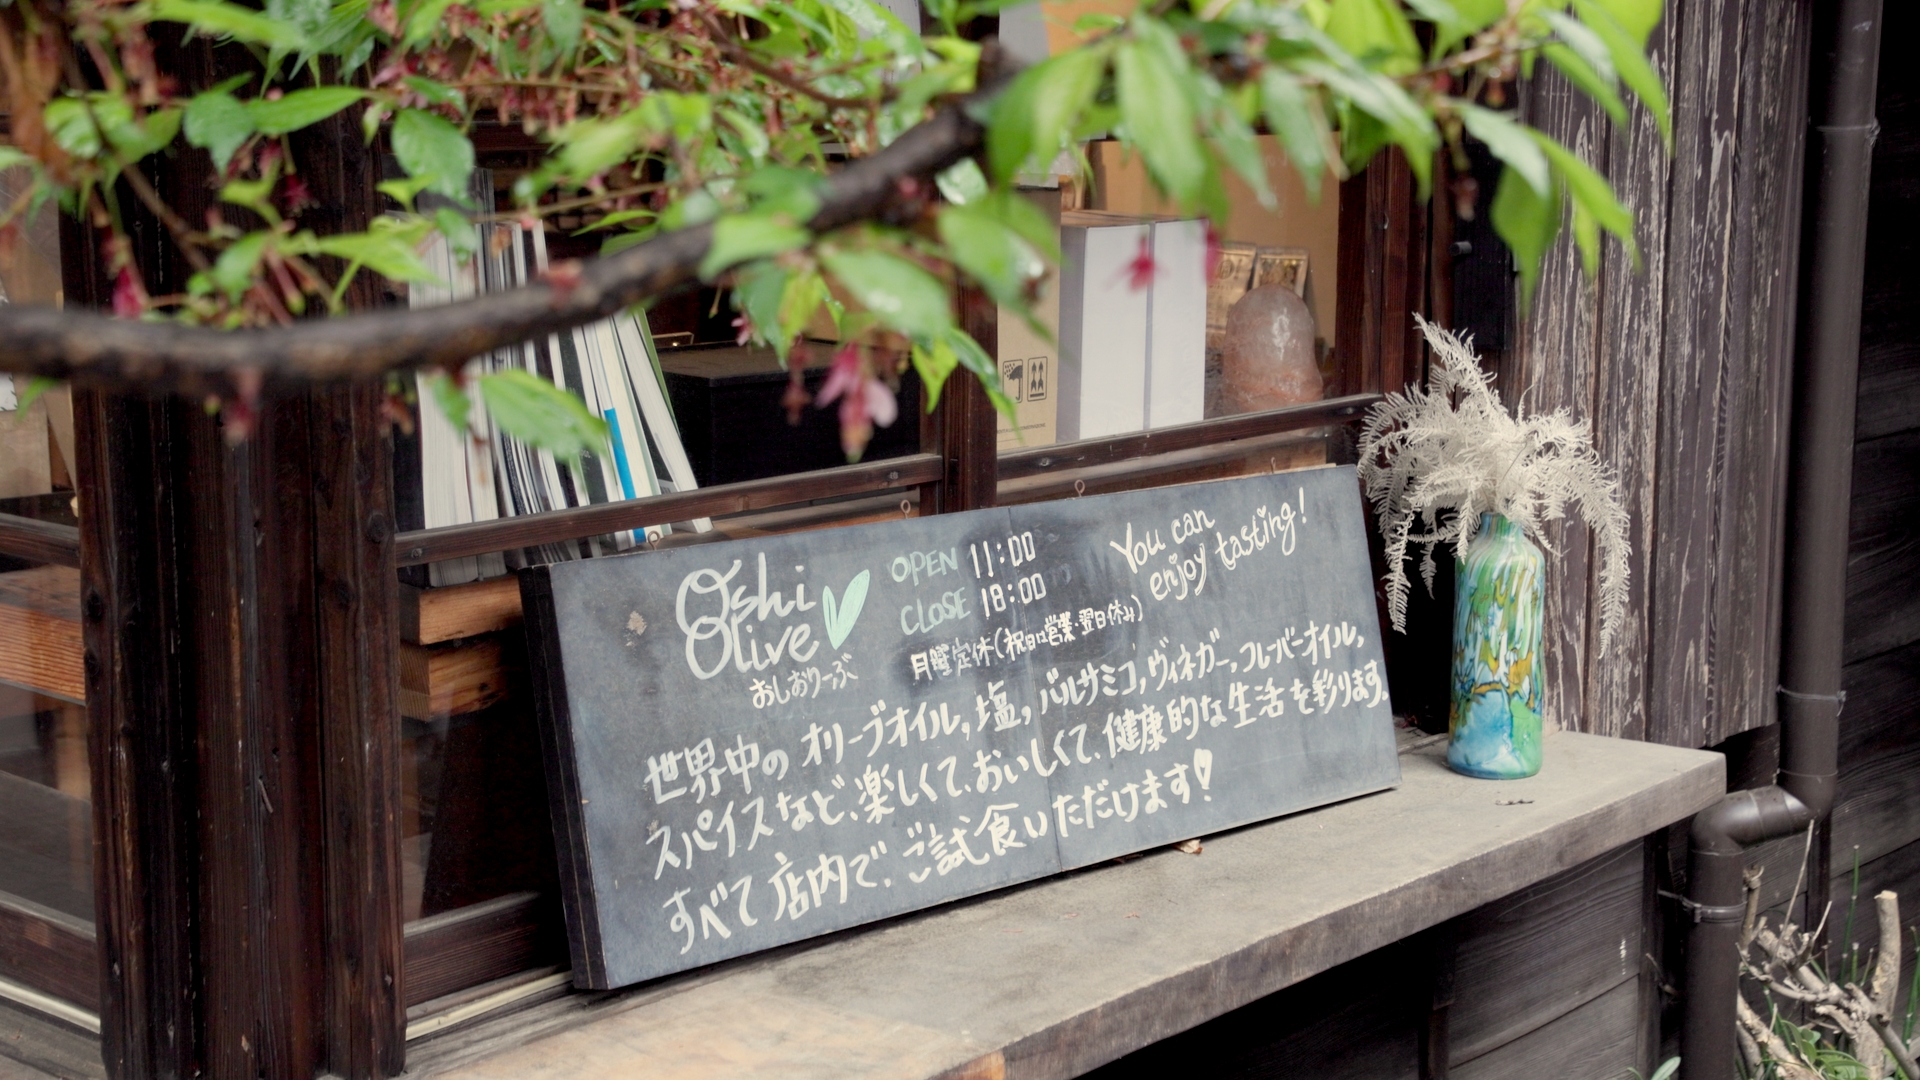 Oshi
Olive
おしおりーぶ
OPEN 11:00
CLOSE 18:00
月曜定休(祝日は営業・翌日休み)
You can
enjoy tasting!
世界中の オリーブオイル, 塩, バルサミコ, ヴィネガー, フレーバーオイル,
スパイスなど、楽しくて、おいしくて、健康的な生活を彩ります。
すべて店内で、ご試食いただけます!